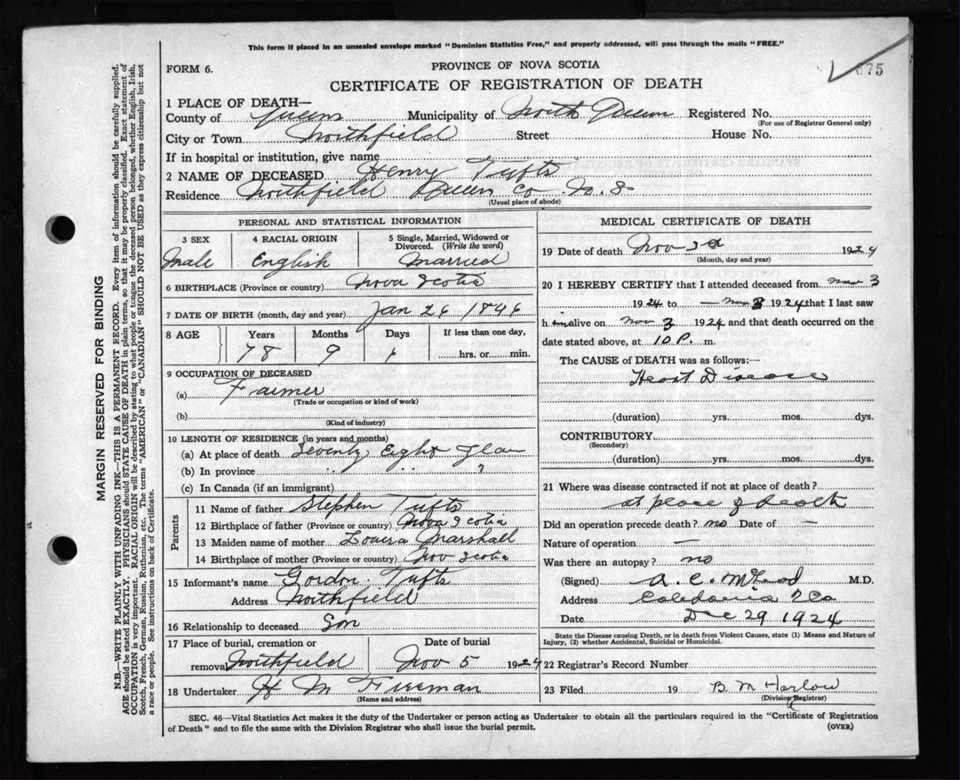 This form if placed in an unsealed envelope marked "Dominion Statistics Free," and properly addressed, will pass through the mails "FREE."
FORM 6.
PROVINCE OF NOVA SCOTIA
675
CERTIFICATE OF REGISTRATION OF DEATH
1 PLACE OF DEATH—
County of Queens Municipality of North Queens Registered No.
(For use of Registrar General only)
City or Town Northfield Street House No.
If in hospital or institution, give name
2 NAME OF DECEASED Henry Tufts
Residence Northfield Queens Co N.S
(Usual place of abode)
PERSONAL AND STATISTICAL INFORMATION
3 SEX 4 RACIAL ORIGIN 5 Single, Married, Widowed or Divorced. (Write the word)
Male English Married
6 BIRTHPLACE (Province or country) Nova Scotia
7 DATE OF BIRTH (month, day and year) Jan 26 1846
8 AGE Years Months Days If less than one day,
78 9 hrs. or min.
9 OCCUPATION OF DECEASED
(a) Farmer
(Trade or occupation or kind of work)
(b)
(Kind of industry)
10 LENGTH OF RESIDENCE (in years and months)
(a) At place of death Seventy Eight Years
(b) In province " " "
(c) In Canada (if an immigrant)
Parents
11 Name of father Stephen Tufts
12 Birthplace of father (Province or country) Nova Scotia
13 Maiden name of mother Louisa Marshall
14 Birthplace of mother (Province or country) Nov Scotia
15 Informant's name Gordon Tufts
Address Northfield
16 Relationship to deceased Son
17 Place of burial, cremation or removal Northfield Date of burial Nov 5 1924
18 Undertaker H M Freeman
(Name and address)
MEDICAL CERTIFICATE OF DEATH
19 Date of death Nov 3d 1924
(Month, day and year)
20 I HEREBY CERTIFY that I attended deceased from Nov 3
1924 to — Nov 3 1924 that I last saw
him alive on Nov 3 1924 and that death occurred on the
date stated above, at 10 P. m.
The CAUSE of DEATH was as follows:—
Heart Disease
(duration) yrs. mos. dys.
CONTRIBUTORY
(Secondary)
(duration) yrs. mos. dys.
21 Where was disease contracted if not at place of death?
at place of death
Did an operation precede death? no Date of —
Nature of operation —
Was there an autopsy? no
(Signed) A. C. McLeod M.D.
Address Caledonia Q Co
Date Dec 29 1924
State the Disease causing Death, or in death from Violent Causes, state (1) Means and Nature of
Injury, (2) whether Accidental, Suicidal or Homicidal.
22 Registrar's Record Number
23 Filed 19 B. M Harlow
(Division Registrar)
SEC. 46—Vital Statistics Act makes it the duty of the Undertaker or person acting as Undertaker to obtain all the particulars required in the "Certificate of Registration
of Death" and to file the same with the Division Registrar who shall issue the burial permit. (OVER)
MARGIN RESERVED FOR BINDING
N.B.—WRITE PLAINLY WITH UNFADING INK—THIS IS A PERMANENT RECORD. Every item of information should be carefully supplied.
AGE should be stated EXACTLY. PHYSICIANS should STATE CAUSE OF DEATH in plain terms, so that it may be properly classified. Exact statement of
OCCUPATION is very important. RACIAL ORIGIN will be described by stating to what people or tongue the deceased person belonged, whether English, Irish,
Scotch, French, German, Russian, Ruthenian, etc. The terms "AMERICAN" or "CANADIAN" SHOULD NOT BE USED as they express citizenship but not
a race or people. See instructions on back of Certificate.